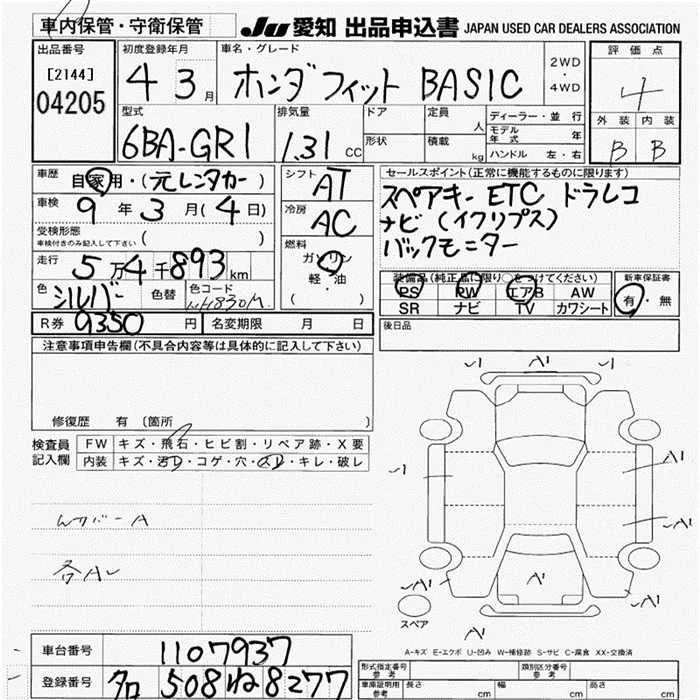 車内保管・守衛保管
JU 愛知 出品申込書 JAPAN USED CAR DEALERS ASSOCIATION
出品番号
[2144]
04205
初度登録年月
4 3月
車名・グレード
ホンダ フィット BASIC
2WD
・
4WD
評価点
4
外装 内装
B B
型式
6BA-GR1
排気量
1.31 CC
ドア
形状
定員
人
積載
kg
ディーラー・並行
モデル年式 年
ハンドル 左・右
車歴 自家用・(元レンタカー)
車検 9年3月(4日)
受検形態
車検付きのみ記入して下さい ( )
走行 5万4千893km
色 シルバー 色替 色コード
シフト AT
冷房 AC
燃料
ガソリン
軽・油
( )
セールスポイント(正常に機能するものに限ります)
スペアキー ETC ドラレコ
ナビ(イクリプス)
バックモニター
装備品(純正品に限り○をつけてください)
PS PW エアB AW
SR ナビ TV カワシート
新車保証書
有・無
R券 9350円 名変期限 月 日
後日品
注意事項申告欄(不具合内容等は具体的に記入して下さい)
修復歴 有〔箇所 〕
検査員
記入欄
FW キズ・飛石・ヒビ割・リペア跡・X要
内装 キズ・汚レ・コゲ・穴・スレ・キレ・破レ
各A
A1
A1
A1
A1
A1
A1
A1
スペア
A-キズ E-エクボ U-凹み W-補修跡 S-サビ C-腐食 XX-交換済
車台番号 1107937
登録番号 508 ね 8277
形式指定番号
参考
類別区分番号
参考
車庫証明用
参考
長さ cm 幅 cm 高さ cm